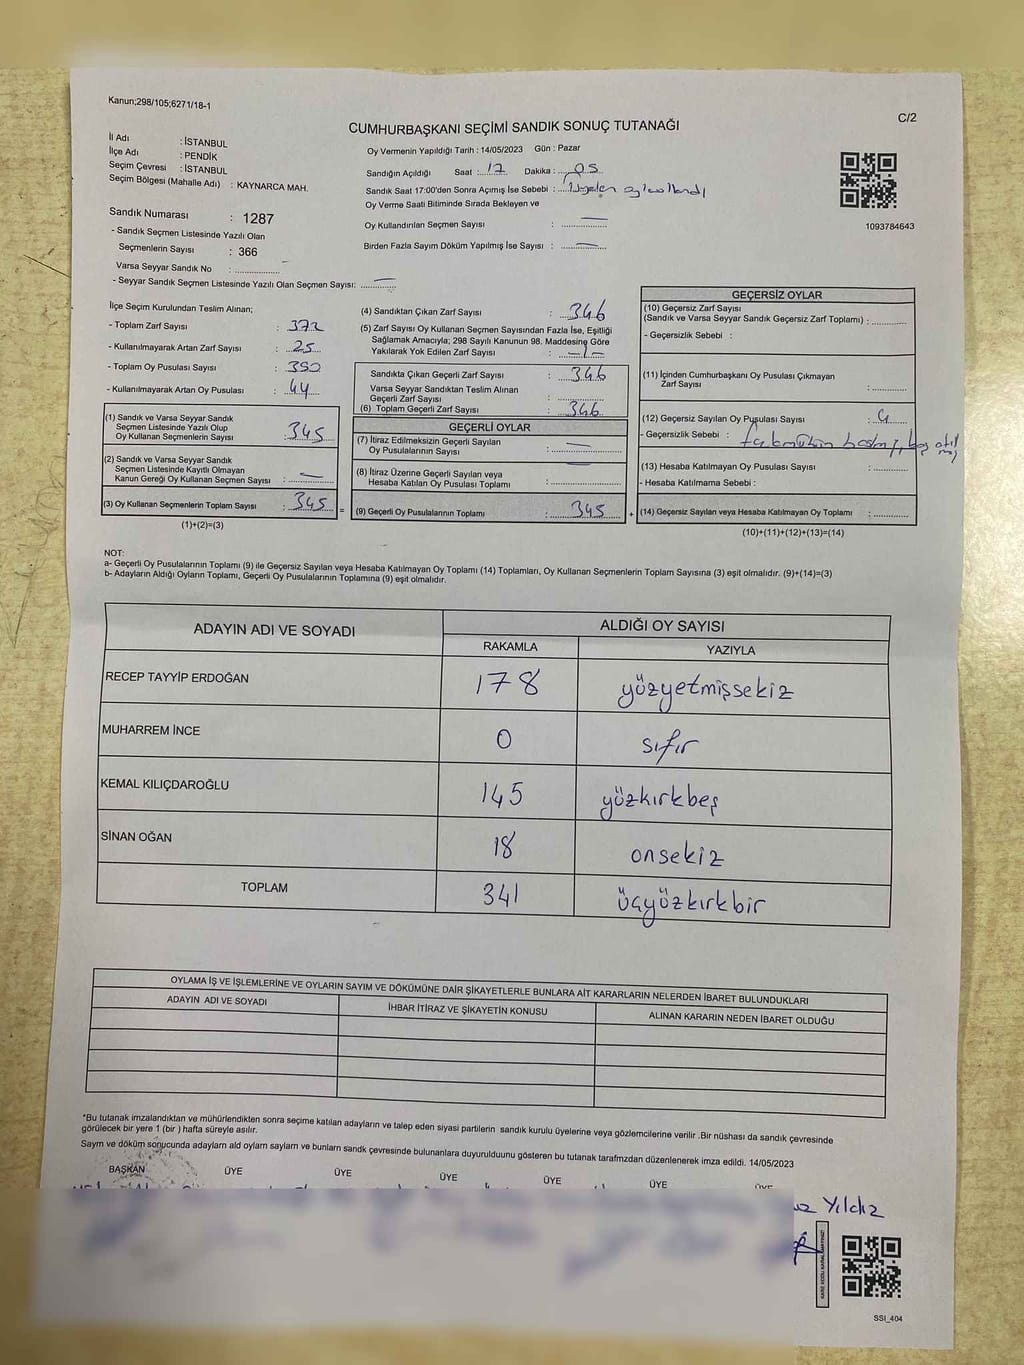 Kanun;298/105;6271/18-1
C/2
CUMHURBAŞKANI SEÇİMİ SANDIK SONUÇ TUTANAĞI
İl Adı : İSTANBUL
İlçe Adı : PENDİK
Seçim Çevresi : İSTANBUL
Seçim Bölgesi (Mahalle Adı) : KAYNARCA MAH.
Sandık Numarası : 1287
- Sandık Seçmen Listesinde Yazılı Olan
Seçmenlerin Sayısı : 366
Varsa Seyyar Sandık No : ..................
- Seyyar Sandık Seçmen Listesinde Yazılı Olan Seçmen Sayısı: —
Oy Vermenin Yapıldığı Tarih : 14/05/2023 Gün : Pazar
Sandığın Açıldığı Saat : 17 Dakika : 05
Sandık Saat 17:00'den Sonra Açımış İse Sebebi :
Oy Verme Saati Bitiminde Sırada Bekleyen ve
Oy Kullandırılan Seçmen Sayısı : —
Birden Fazla Sayım Döküm Yapılmış İse Sayısı : —
1093784643
İlçe Seçim Kurulundan Teslim Alınan;
- Toplam Zarf Sayısı : 372
- Kullanılmayarak Artan Zarf Sayısı : 25
- Toplam Oy Pusulası Sayısı : 390
- Kullanılmayarak Artan Oy Pusulası : 44
(1) Sandık ve Varsa Seyyar Sandık
Seçmen Listesinde Yazılı Olup
Oy Kullanan Seçmenlerin Sayısı : 345
(2) Sandık ve Varsa Seyyar Sandık
Seçmen Listesinde Kayıtlı Olmayan
Kanun Gereği Oy Kullanan Seçmen Sayısı : —
(3) Oy Kullanan Seçmenlerin Toplam Sayısı : 345 =
(1)+(2)=(3)
(4) Sandıktan Çıkan Zarf Sayısı : 346
(5) Zarf Sayısı Oy Kullanan Seçmen Sayısından Fazla İse, Eşitliği
Sağlamak Amacıyla; 298 Sayılı Kanunun 98. Maddesine Göre
Yakılarak Yok Edilen Zarf Sayısı : —1—
Sandıkta Çıkan Geçerli Zarf Sayısı : 346
Varsa Seyyar Sandıktan Teslim Alınan
Geçerli Zarf Sayısı : ..................
(6) Toplam Geçerli Zarf Sayısı : 346
GEÇERLİ OYLAR
(7) İtiraz Edilmeksizin Geçerli Sayılan
Oy Pusulası Sayısı : —
(8) İtiraz Üzerine Geçerli Sayılan veya
Hesaba Katılan Oy Pusulası Toplamı : —
(9) Geçerli Oy Pusulalarının Toplamı : 345 +
GEÇERSİZ OYLAR
(10) Geçersiz Zarf Sayısı
(Sandık ve Varsa Seyyar Sandık Geçersiz Zarf Toplamı) : ............
- Geçersizlik Sebebi :
(11) İçinden Cumhurbaşkanı Oy Pusulası Çıkmayan
Zarf Sayısı : ............
(12) Geçersiz Sayılan Oy Pusulası Sayısı : 4
- Geçersizlik Sebebi :
(13) Hesaba Katılmayan Oy Pusulası Sayısı : ............
- Hesaba Katılmama Sebebi :
(14) Geçersiz Sayılan veya Hesaba Katılmayan Oy Toplamı : ............
(10)+(11)+(12)+(13)=(14)
NOT:
a- Geçerli Oy Pusulalarının Toplamı (9) ile Geçersiz Sayılan veya Hesaba Katılmayan Oy Toplamı (14) Toplamları, Oy Kullanan Seçmenlerin Toplam Sayısına (3) eşit olmalıdır. (9)+(14)=(3)
b- Adayların Aldığı Oyların Toplamı, Geçerli Oy Pusulalarının Toplamına (9) eşit olmalıdır.
ADAYIN ADI VE SOYADI
ALDIĞI OY SAYISI
RAKAMLA YAZIYLA
RECEP TAYYİP ERDOĞAN 178 yüzyetmişsekiz
MUHARREM İNCE 0 sıfır
KEMAL KILIÇDAROĞLU 145 yüzkırkbeş
SİNAN OĞAN 18 onsekiz
TOPLAM 341 üçyüzkırkbir
OYLAMA İŞ VE İŞLEMLERİNE VE OYLARIN SAYIM VE DÖKÜMÜNE DAİR ŞİKAYETLERLE BUNLARA AİT KARARLARIN NELERDEN İBARET BULUNDUKLARI
ADAYIN ADI VE SOYADI İHBAR İTİRAZ VE ŞİKAYETİN KONUSU ALINAN KARARIN NEDEN İBARET OLDUĞU
*Bu tutanak imzalandıktan ve mühürlendikten sonra seçime katılan adayların ve talep eden siyasi partilerin sandık kurulu üyelerine veya gözlemcilerine verilir .Bir nüshası da sandık çevresinde
görülecek bir yere 1 (bir ) hafta süreyle asılır.
Sayım ve döküm sonucunda adayların ald oyların sayların ve bunların sandk çevresinde bulunanlara duyurulduunu gösteren bu tutanak tarafmzdan düzenlenerek imza edildi. 14/05/2023
BAŞKAN ÜYE ÜYE ÜYE ÜYE ÜYE ÜYE
Yıldız
SSI_404